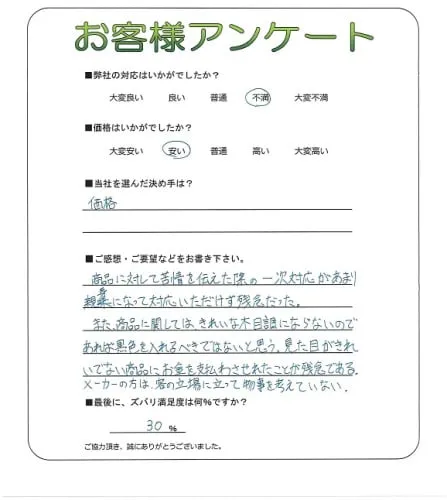 お客様アンケート
■弊社の対応はいかがでしたか？
大変良い 良い 普通 不満 大変不満
■価格はいかがでしたか？
大変安い 安い 普通 高い 大変高い
■当社を選んだ決め手は？
価格
■ご感想・ご要望などをお書き下さい。
商品に対して苦情を伝えた際の一次対応があまり
親身になって対応いただけず残念だった。
また、商品に関しては、きれいな木目調にならないので
あれば黒色を入れるべきではないと思う。見た目がきれ
いでない商品にお金を支払わさせれたことが残念である。
メーカーの方は、客の立場に立って物事を考えていない。
■最後に、ズバリ満足度は何％ですか？
30 ％
ご協力頂き、誠にありがとうございました。